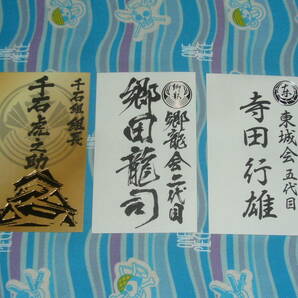 千石組組長
千石虎之助
郷龍
郷龍会二代目
郷田龍司
東
東城会 五代目
寺田行雄